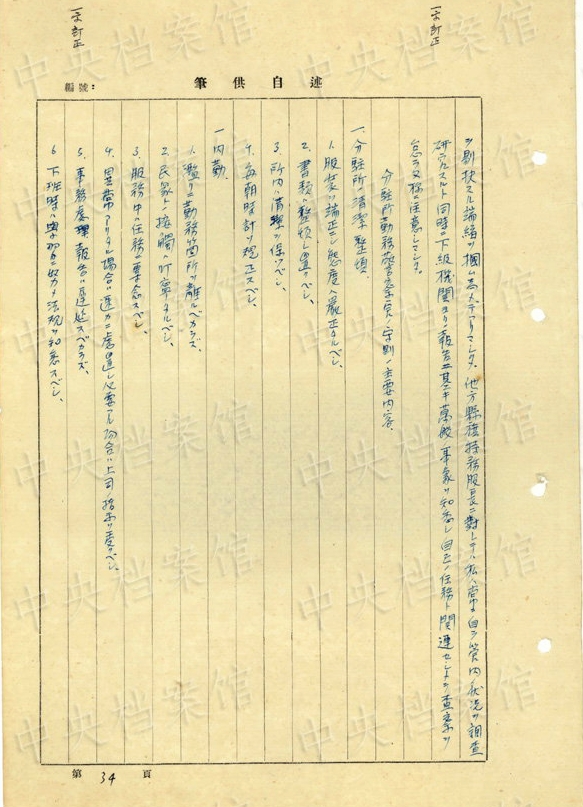 一字訂正
一字訂正
編號：
筆供自述
ヲ剔抉スル端緒ヲ掴ム為メデアリマシタ。地方縣旗特務股長ニ對シテハ私ハ常ニ自ラ管内ノ状況ヲ調査
研究スルト同時ニ下級機関ヨリノ報告ニ基キ萬般ノ事象ヲ知悉シ自己ノ任務ト関連セシメテ査察ヲ
怠ラヌ様ニ注意シマシタ。
分駐所勤務警察官ノ守則ノ主要内容。
一、分駐所ノ清潔整頓。
1. 服装ハ端正ニシ態度ハ嚴正タルベシ、
2. 書類ハ整頓シ置クベシ、
3. 所内ハ清潔ヲ保ツベシ、
4. 毎朝時計ヲ規正スベシ、
一内勤、
1. 濫リニ勤務箇所ヲ離ルベカラズ、
2. 民衆トノ接觸ハ叮寧タルベシ、
3. 服務中ハ任務ニ専念スベシ、
4. 異常アリタル場合ハ速カニ處置シ必要アル場合ハ上司ノ指示ヲ受クベシ、
5. 事務處理報告ハ遅延スベカラズ、
6. 下班時ハ學習ニ努力シ法規ヲ知悉スベシ、
第 34 頁
中央档案馆